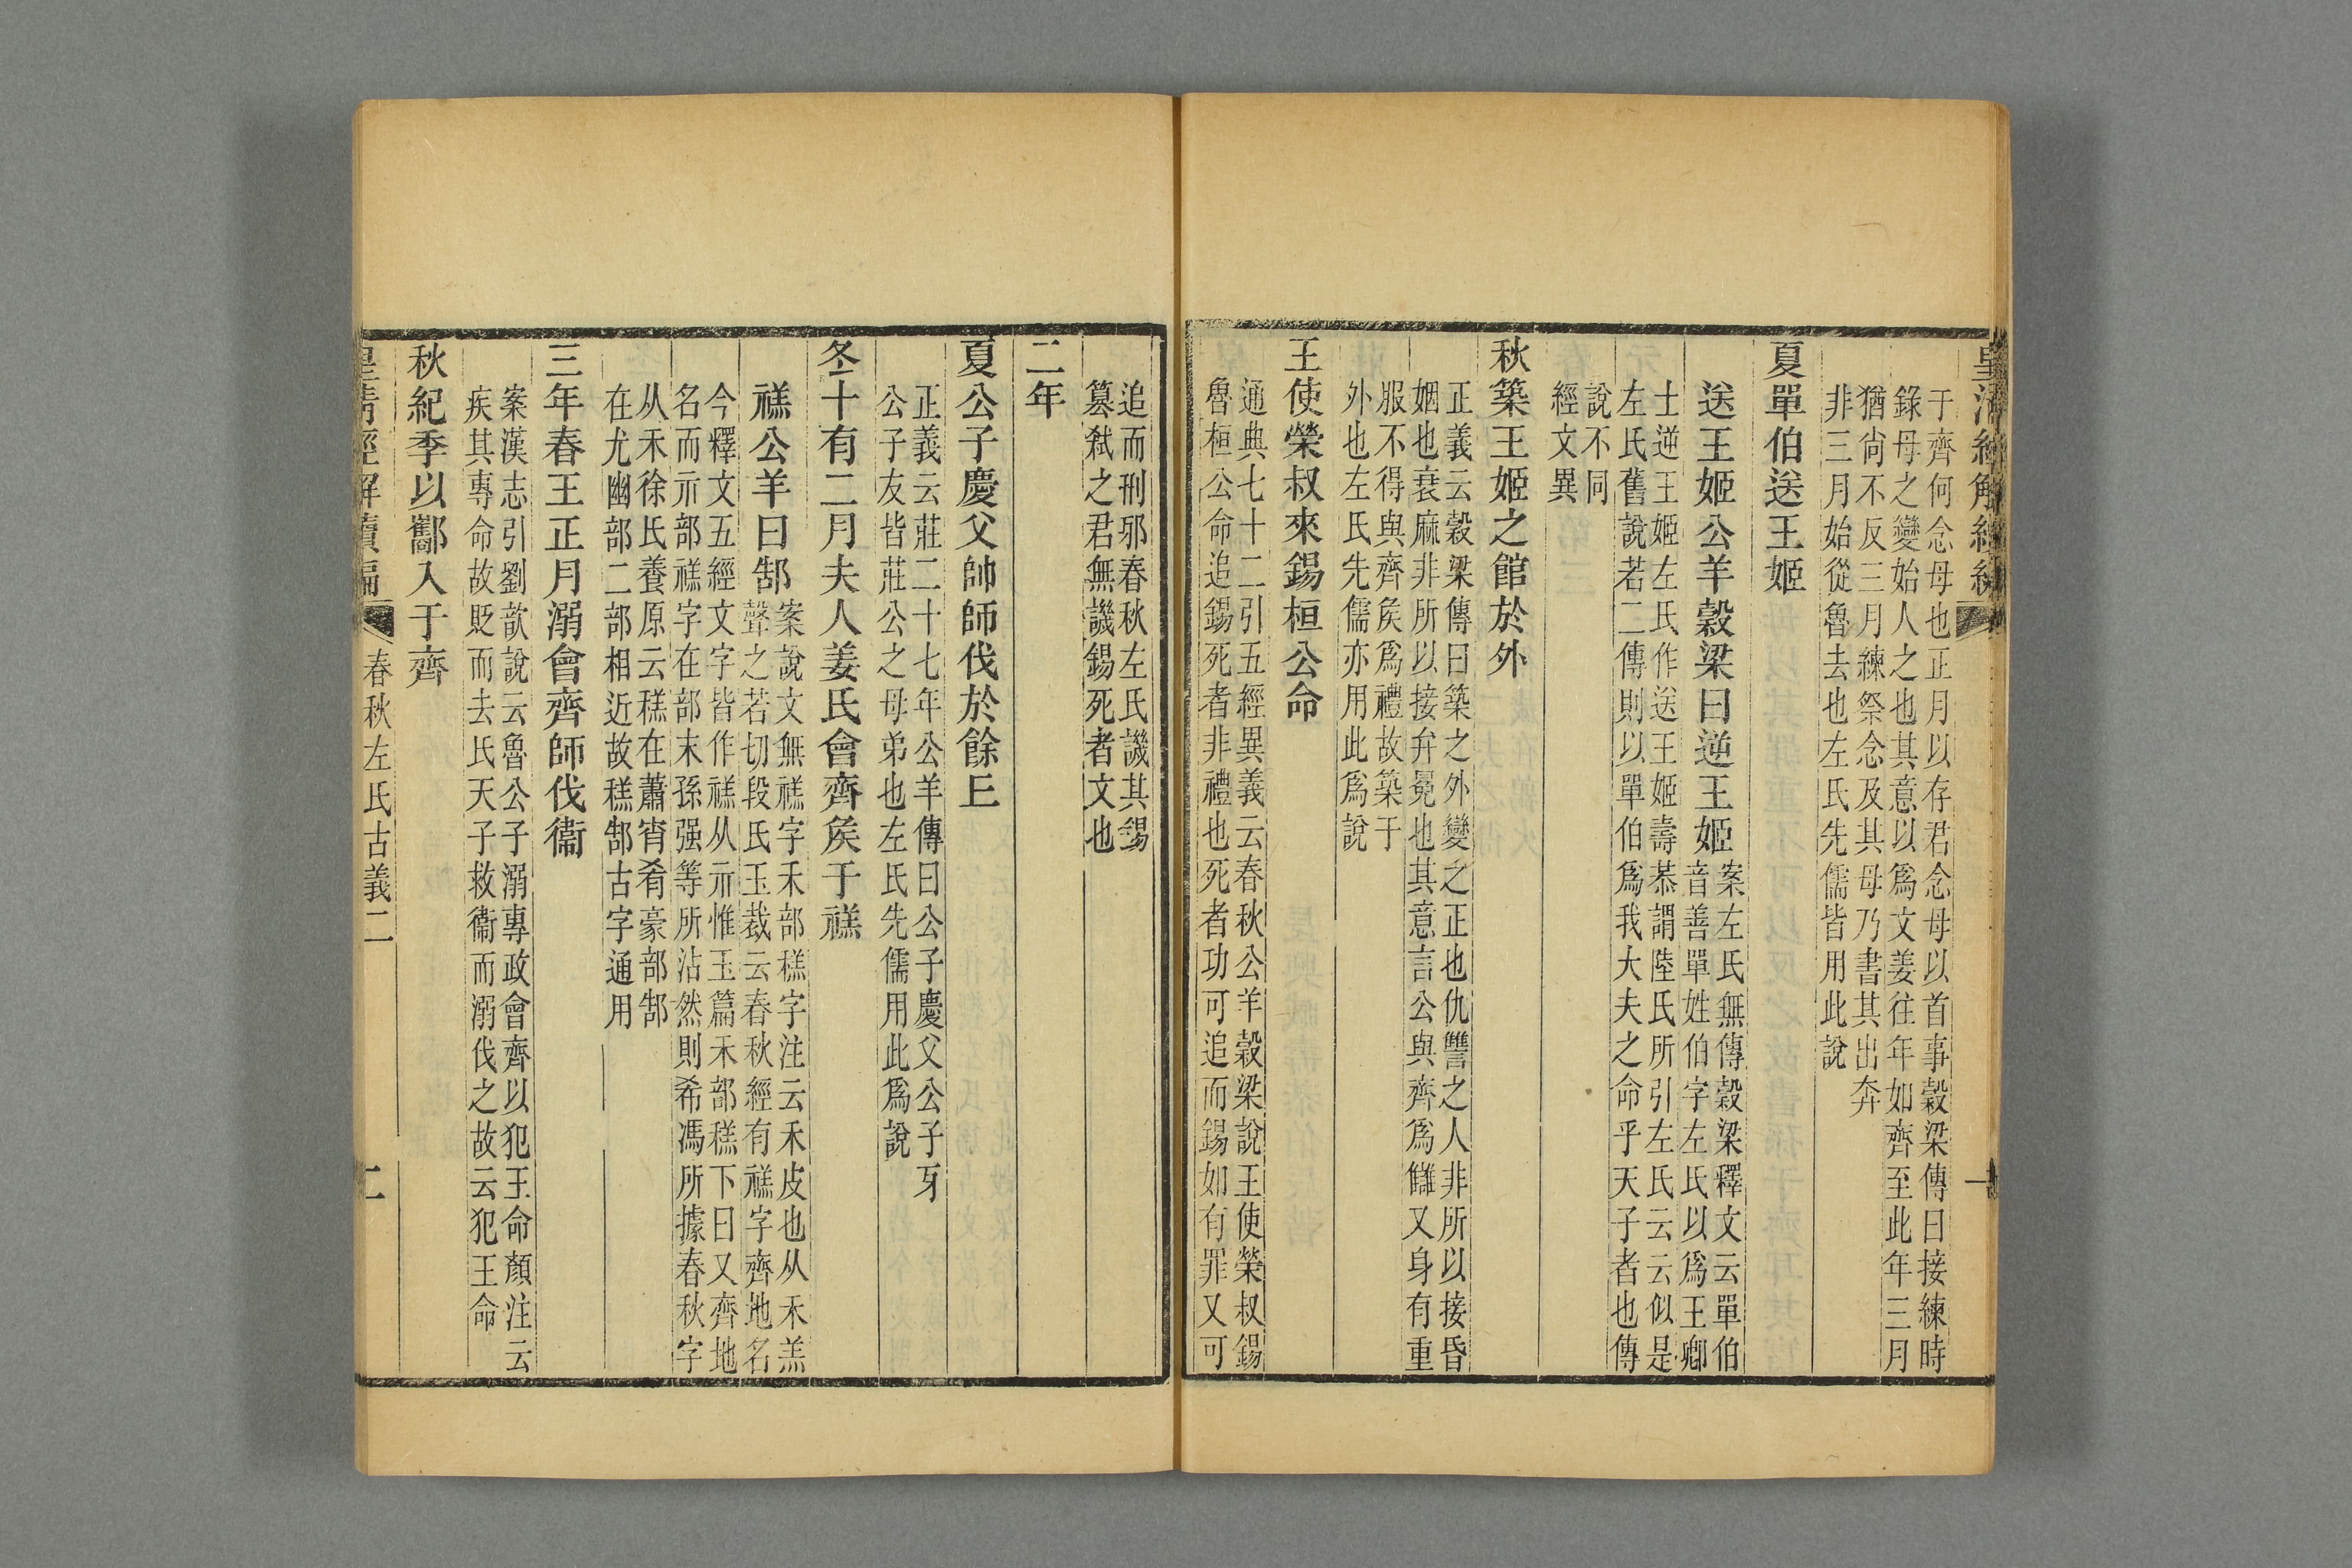 于齊何念母也正月以存君念母以首事穀梁傳曰接練時
錄母之變始人之也其意以爲文姜往年如齊至此年三月
猶尚不反三月練祭念及其母乃書其出奔
非三月始從魯去也左氏先儒皆用此說
夏單伯送王姬
送王姬公羊穀梁曰逆王姬
案左氏無傳穀梁釋文云單伯
音善單姓伯字左氏以爲王卿
士逆王姬左氏作送王姬壽恭謂陸氏所引左氏云云似是
左氏舊說若二傳則以單伯爲我大夫之命乎天子者也傳
說不同
經文異
秋築王姬之館於外
正義云穀梁傳曰築之外變之正也仇讐之人非所以接昏
姻也衰麻非所以接弁冕也其意言公與齊爲讎又身有重
服不得與齊矦爲禮故築于
外也左氏先儒亦用此爲說
王使榮叔來錫桓公命
通典七十二引五經異義云春秋公羊穀梁說王使榮叔錫
魯桓公命追錫死者非禮也死者功可追而錫如有罪又可
追而刑邪春秋左氏譏其錫
篡弑之君無譏錫死者文也
二年
夏公子慶父帥師伐於餘𠀌
正義云莊二十七年公羊傳曰公子慶父公子牙
公子友皆莊公之母弟也左氏先儒用此爲說
冬十有二月夫人姜氏會齊矦于禚
禚公羊曰郜
案說文無禚字禾部䅵字注云禾皮也从禾羔
聲之若切段氏玉裁云春秋經有禚字齊地名
今釋文五經文字皆作禚从示惟玉篇禾部䅵下曰又齊地
名而示部禚字在部末孫强等所沾然則希馮所據春秋字
从禾徐氏養原云䅵在蕭宵肴豪部郜
在尤幽部二部相近故䅵郜古字通用
三年春王正月溺會齊師伐衞
案漢志引劉歆說云魯公子溺專政會齊以犯王命顏注云
疾其專命故貶而去氏天子救衞而溺伐之故云犯王命
秋紀季以酅入于齊
皇清經解續編
春秋左氏古義二
二